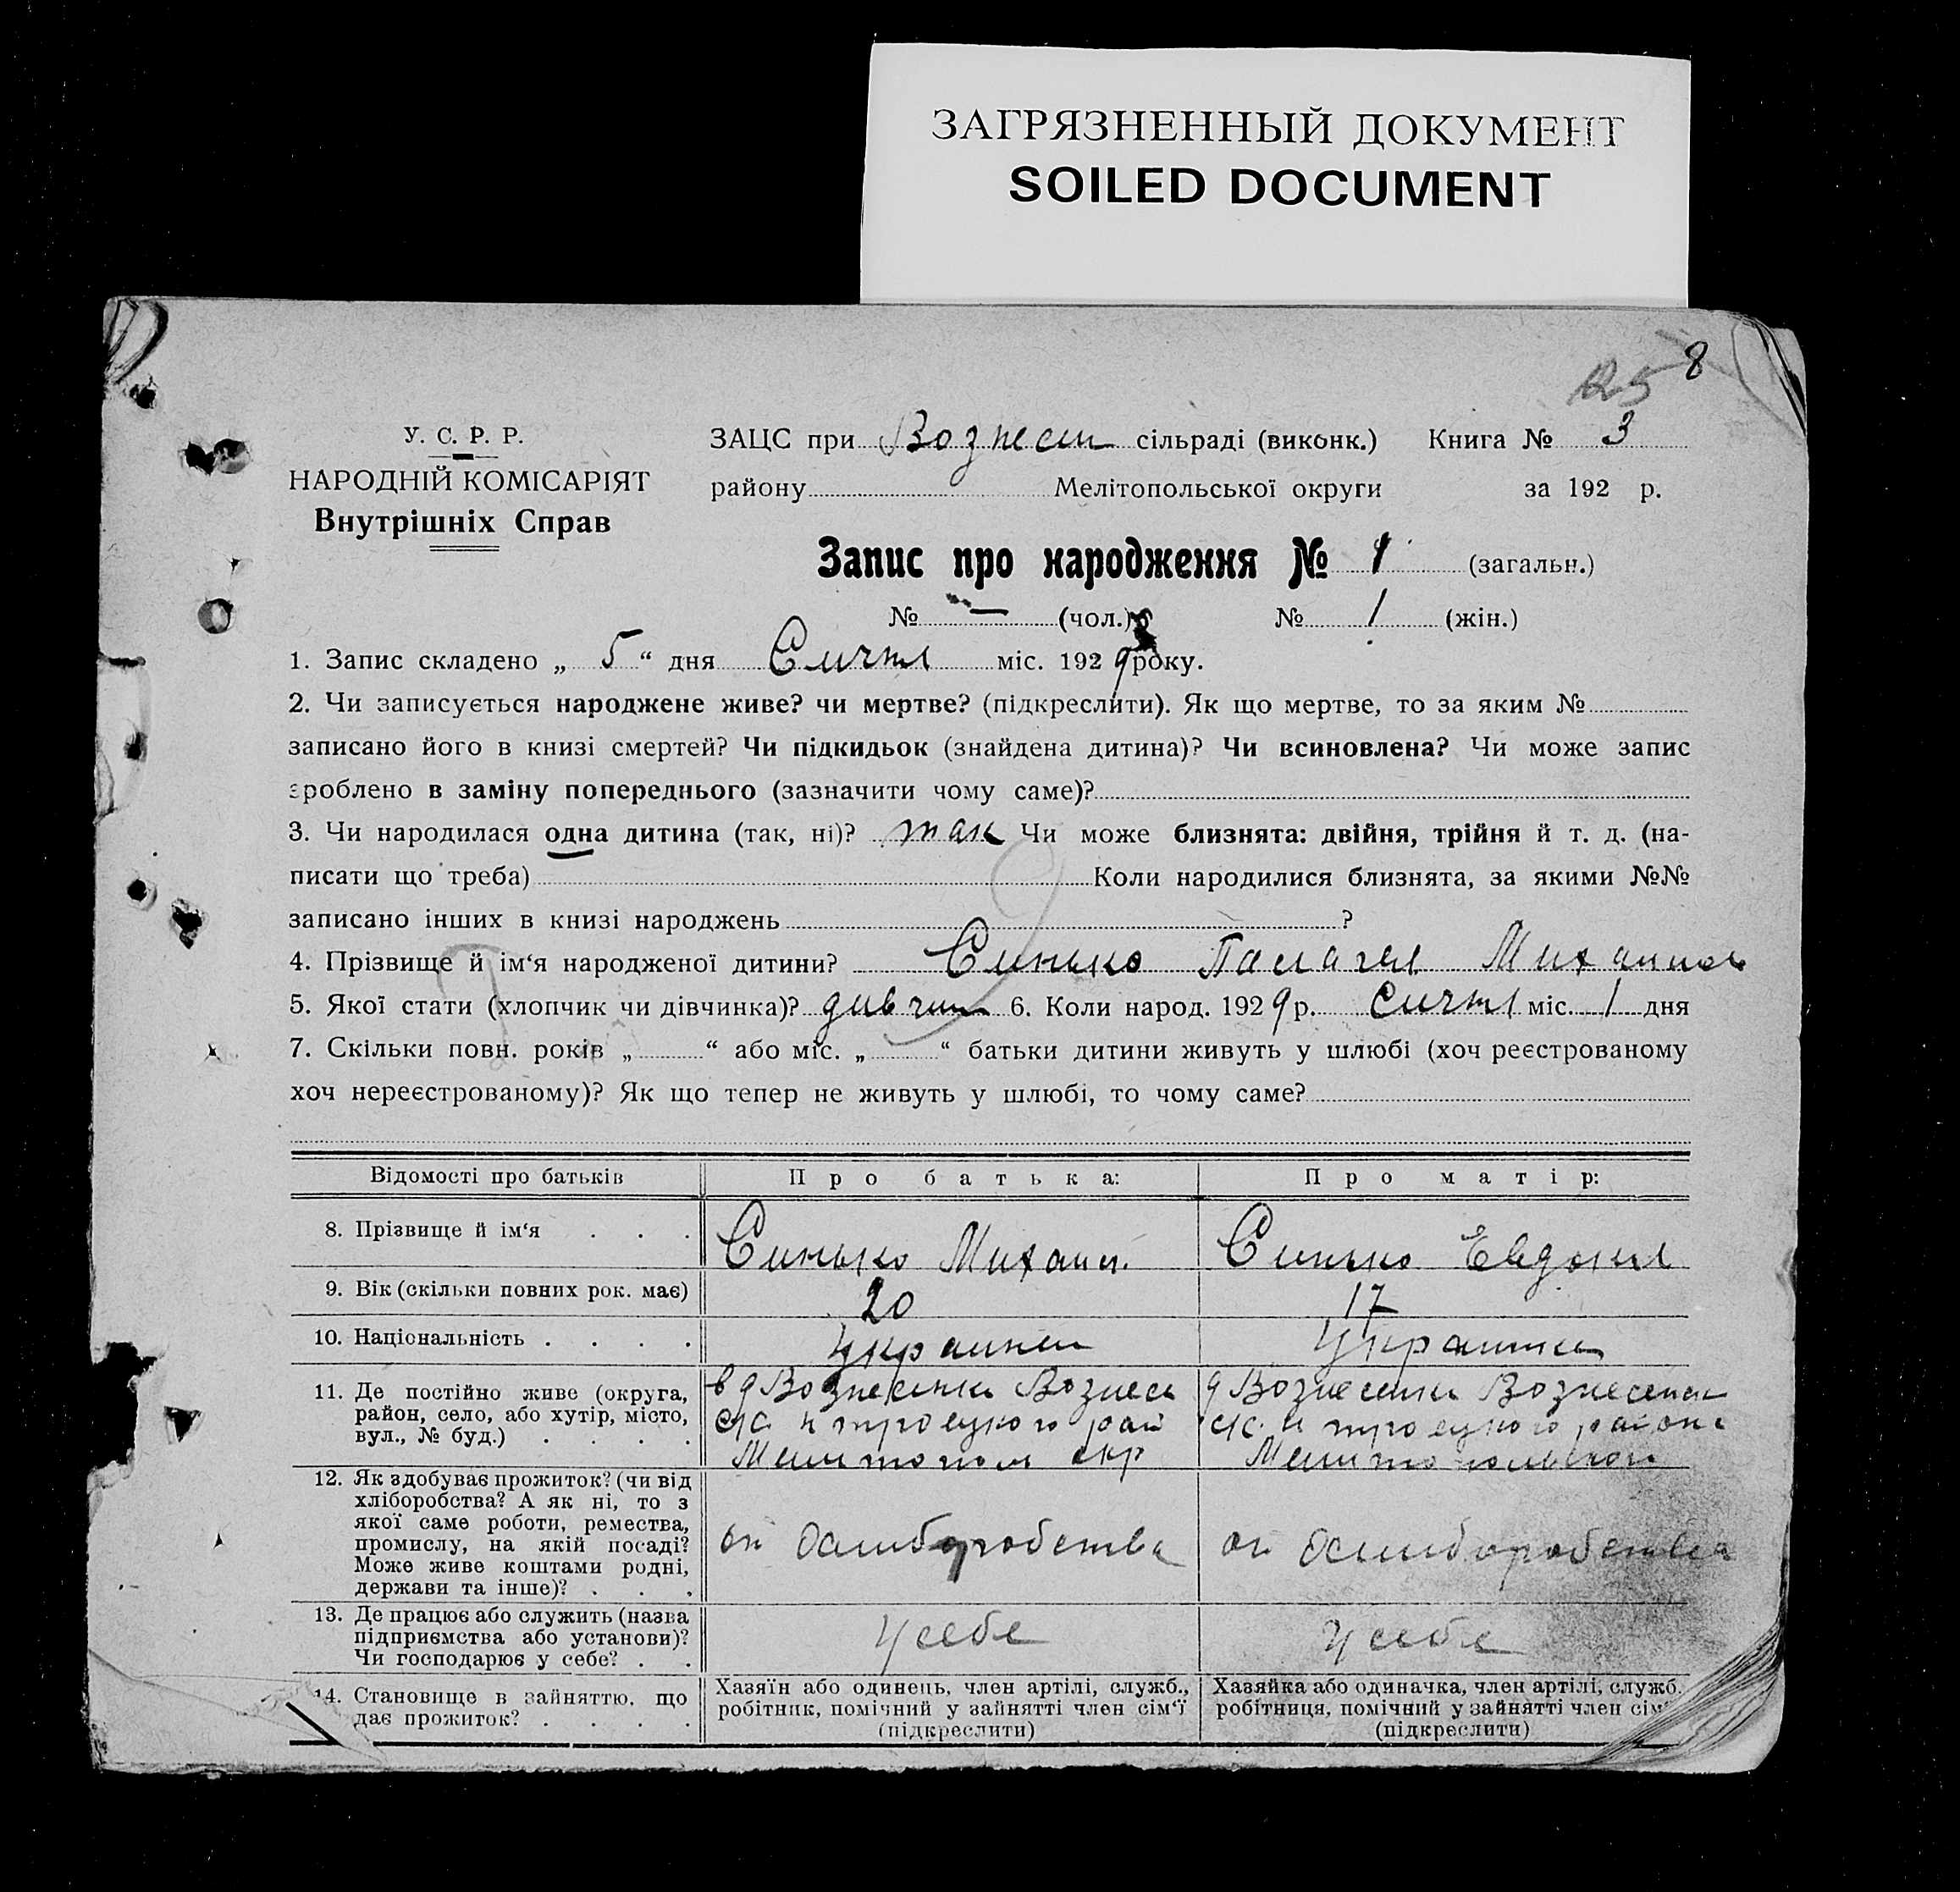 ЗАГРЯЗНЕННЫЙ ДОКУМЕНТ
SOILED DOCUMENT
8
У. С. Р. Р.
НАРОДНІЙ КОМІСАРІЯТ
Внутрішніх Справ
ЗАЦС при Вознесен сільраді (виконк.) Книга № 3
району Мелітопольської округи за 192 р.
Запис про народження № 1 (загальн.)
№ — (чол.) № 1 (жін.)
1. Запис складено „ 5 “ дня Сичня міс. 192 9 року.
2. Чи записується народжене живе? чи мертве? (підкреслити). Як що мертве, то за яким №
записано його в книзі смертей? Чи підкидьок (знайдена дитина)? Чи всиновлена? Чи може запис
зроблено в заміну попереднього (зазначити чому саме)?
3. Чи народилася одна дитина (так, ні)? так Чи може близнята: двійня, трійня й т. д. (на-
писати що треба) Коли народилися близнята, за якими №№
записано інших в книзі народжень ?
4. Прізвище й ім‘я народженої дитини? Синько Палагея Михайлов
5. Якої стати (хлопчик чи дівчинка)? дивчин 6. Коли народ. 192 9 р. Сичня міс. 1 дня
7. Скільки повн. років „ “ або міс. „ “ батьки дитини живуть у шлюбі (хоч реєстрованому
хоч нереєстрованому)? Як що тепер не живуть у шлюбі, то чому саме?
Відомості про батьків Про батька: Про матір:
8. Прізвище й ім‘я . . . Синько Михаил. Синько Евдокия
9. Вік (скільки повних рок. має) 20 17
10. Національність . . . . украинец украинка
11. Де постійно живе (округа,
район, село, або хутір, місто,
вул., № буд.) . . . .
в д Вознесенки Вознесе
с/с н троецкого рай
Мелитопол окр
д Вознесенки Вознесенск
с/с. н троецкого района
Мелитопольской
12. Як здобуває прожиток? (чи від
хліборобства? А як ні, то з
якої саме роботи, ремества,
промислу, на якій посаді?
Може живе коштами родні,
держави та інше)? . . .
хлиборобства
хлиборобства
13. Де працює або служить (назва
підприємства або установи)?
Чи господарює у себе? . .
у себе
у себе
14. Становище в зайняттю, що
дає прожиток? . . . .
Хазяїн або одинець, член артілі, служб.,
робітник, помічний у зайнятті член сім‘ї
(підкреслити)
Хазяйка або одиначка, член артілі, служб.
робітниця, помічний у зайнятті член сім‘
(підкреслити)